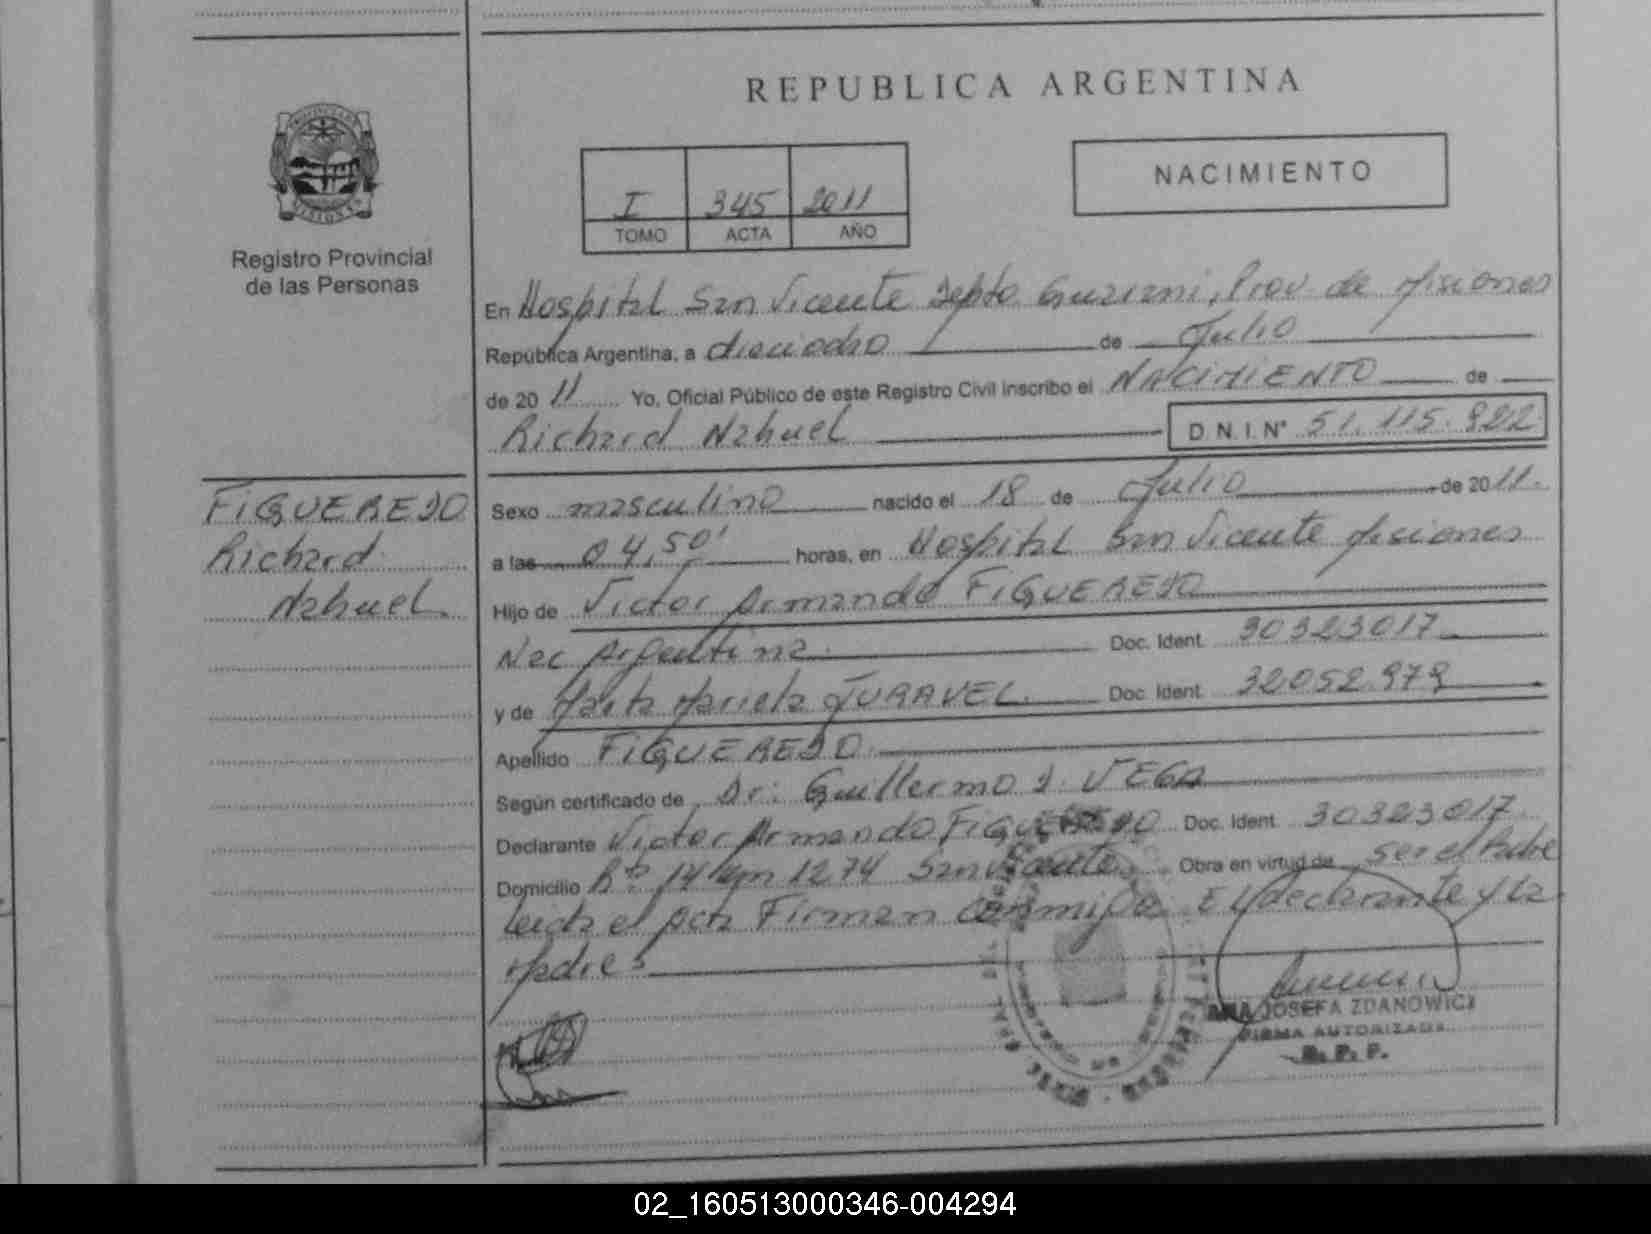 REPUBLICA ARGENTINA
NACIMIENTO
I 345 2011
TOMO ACTA AÑO
Registro Provincial
de las Personas
En Hospital San Vicente Depto Guarani, Prov. de Misiones
República Argentina, a dieciocho de Julio
de 2011 Yo, Oficial Público de este Registro Civil inscribo el NACIMIENTO de
Richard Nahuel D.N.I. N° 51.115.922
FIGUEREDO
Richard
Nahuel.
Sexo masculino nacido el 18 de Julio de 2011.
a las 04,50' horas, en Hospital San Vicente Misiones
Hijo de Victor Armando FIGUEREDO
Nac Argentina. Doc. Ident. 30323017
y de Marta Mariela JURAVEL. Doc. Ident. 32052.979
Apellido FIGUEREDO.
Según certificado de Dr: Guillermo D. VEGA
Declarante Victor Armando FIGUEREDO Doc. Ident. 30323017.
Domicilio Rta 14 km 1274 San Vicente Obra en virtud de ser el Padre
leida el acta Firman conmigo El declarante y la
Madre
ANA JOSEFA ZDANOWICZ
FIRMA AUTORIZADA
R. P. P.
02_160513000346-004294